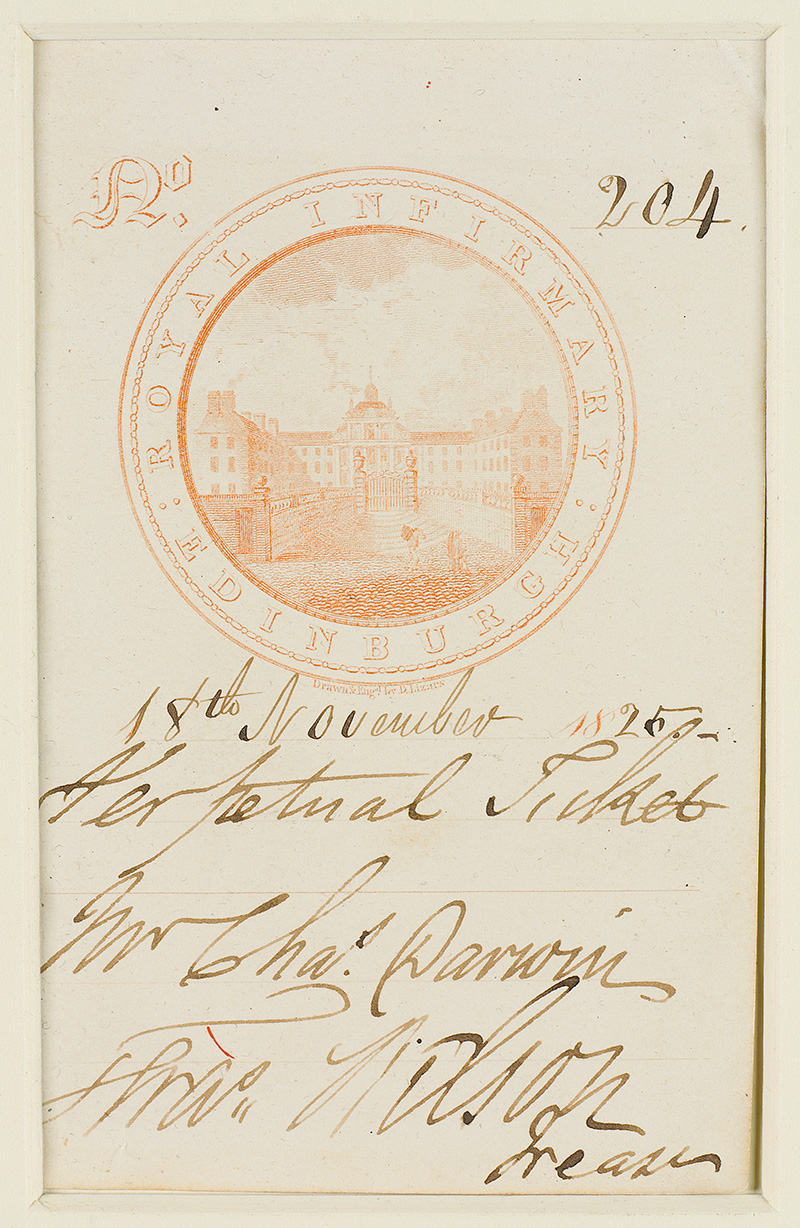 No. 204.
ROYAL INFIRMARY : EDINBURGH :
Drawn & Engd. by D. Lizars
18th November 1825.-
Perpetual Ticket
Mr Chas. Darwin
Wilson
Treasr